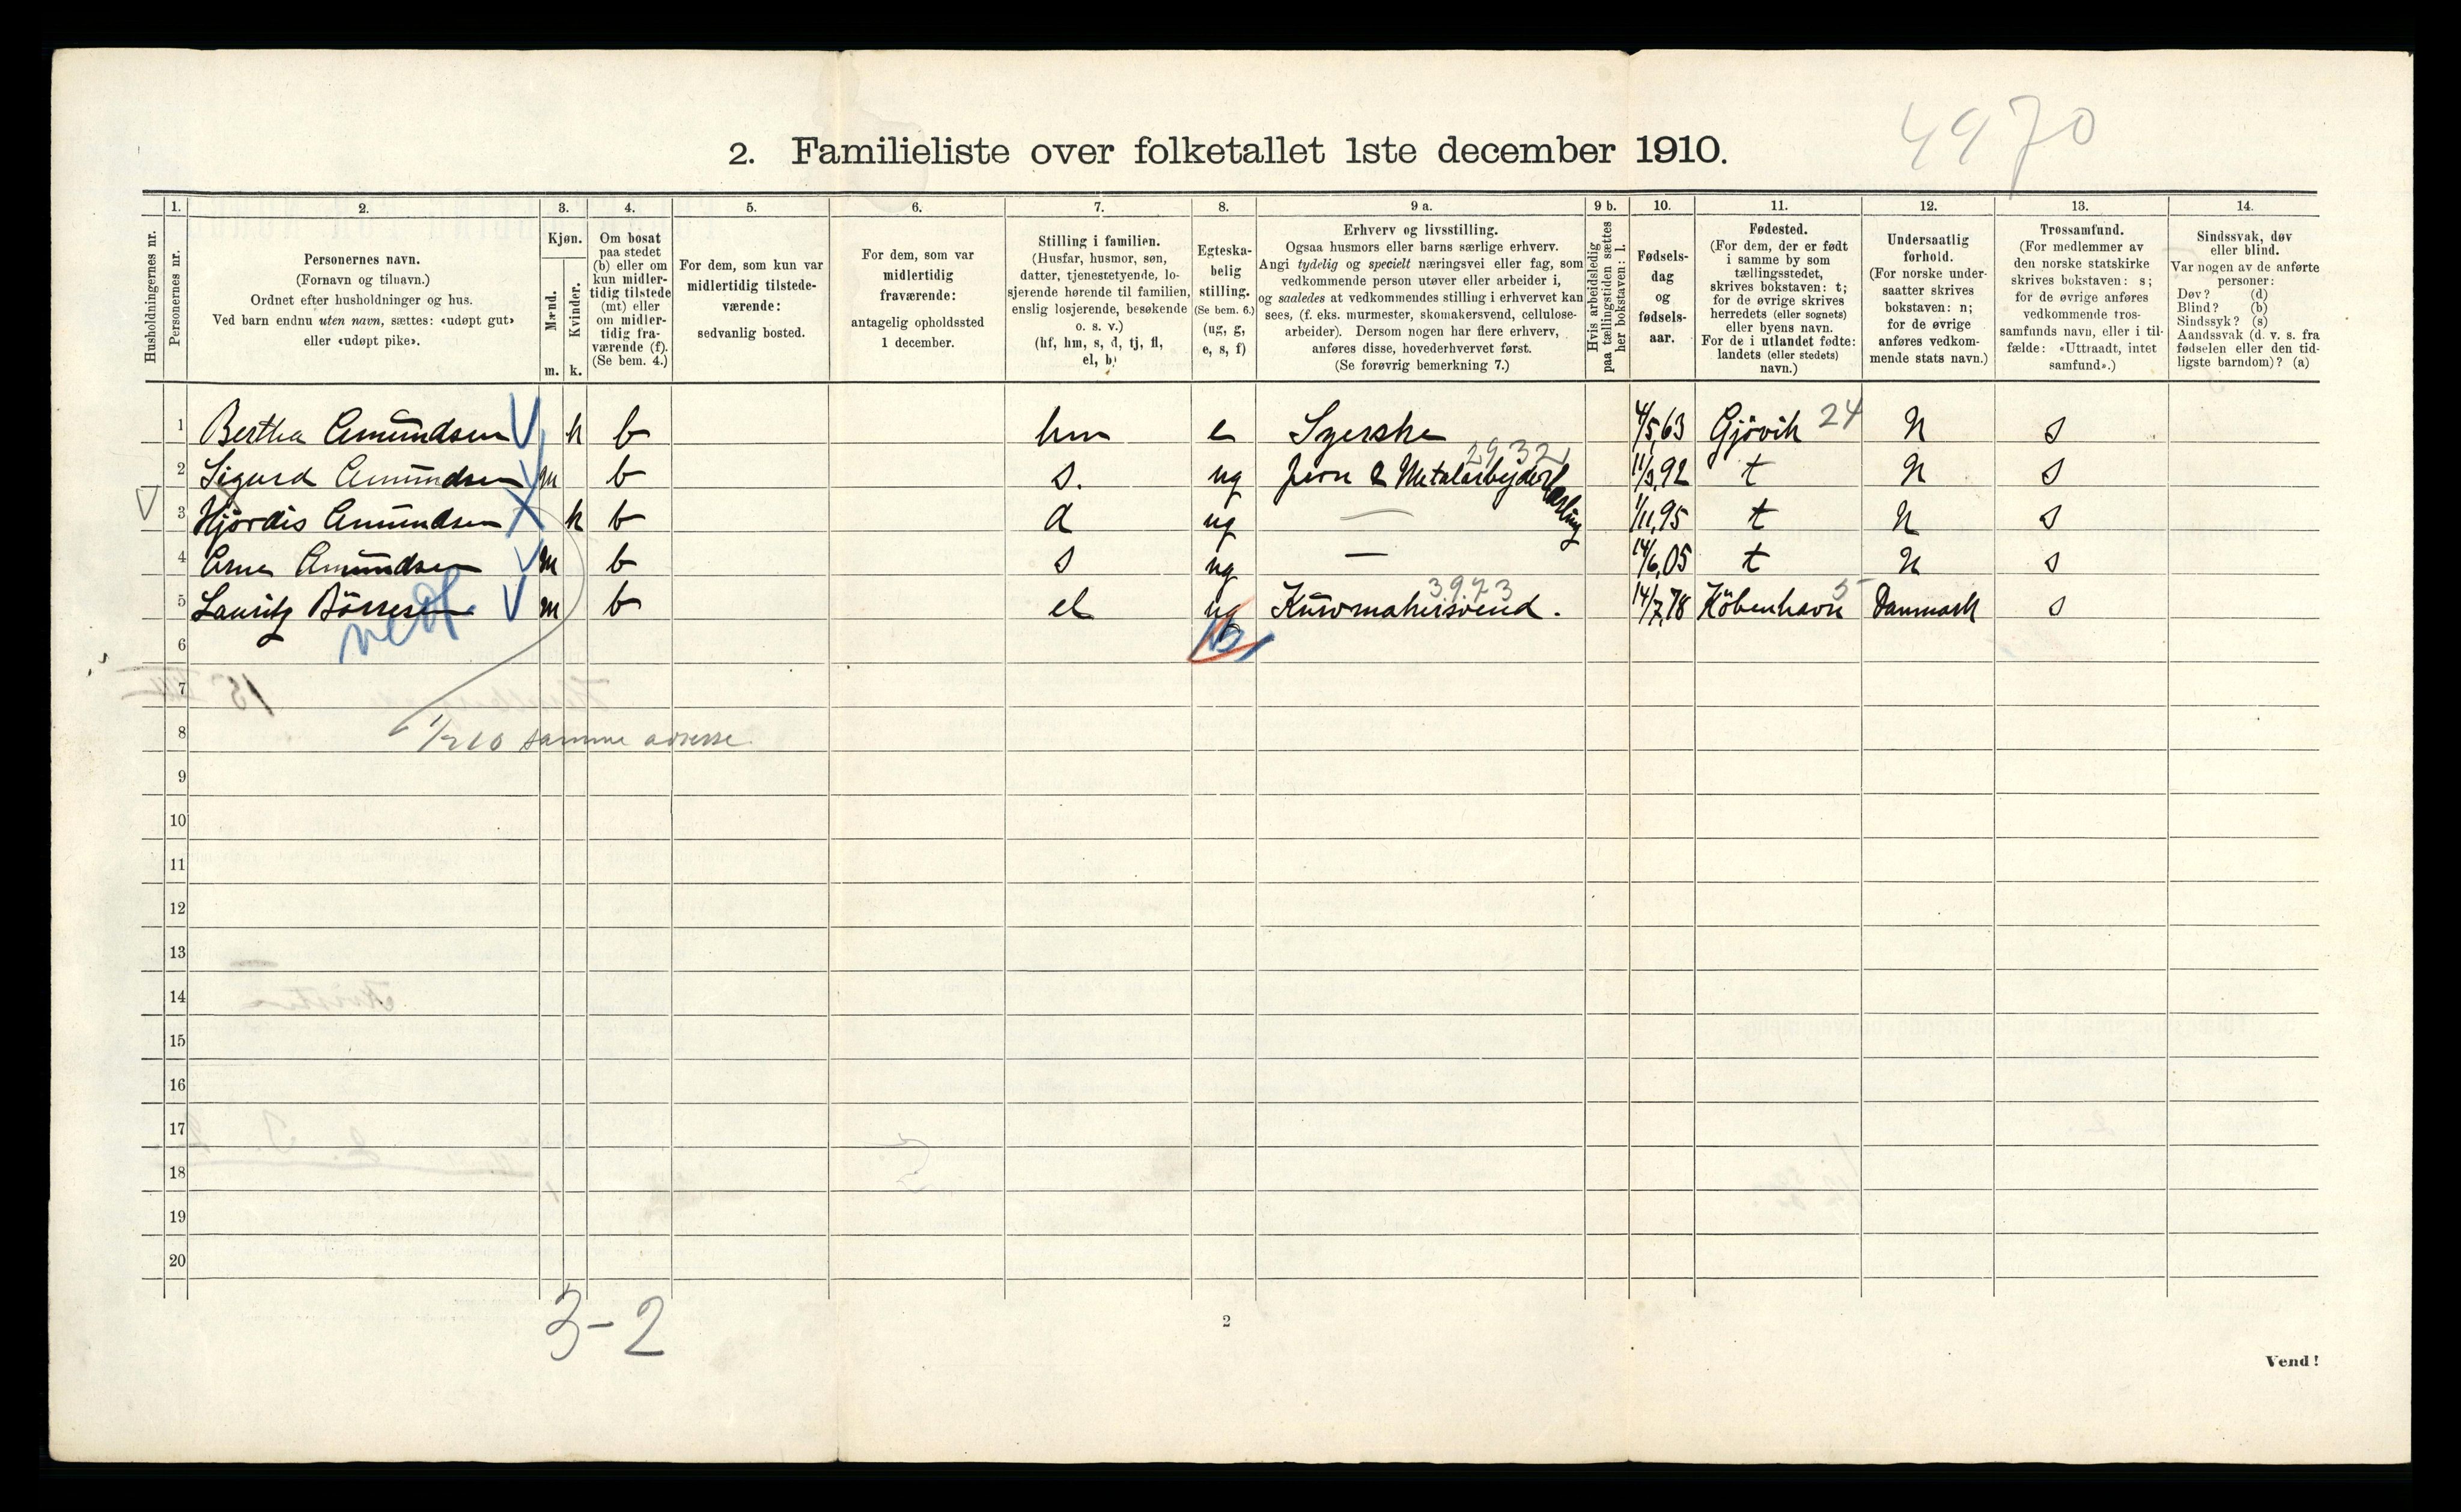 4970
2. Familieliste over folketallet 1ste december 1910.
Husholdningernes nr.
1.
Personernes nr.
2.
Personernes navn.
(Fornavn og tilnavn.)
Ordnet efter husholdninger og hus.
Ved barn endnu uten navn, sættes: «udøpt gut»
eller «udøpt pike».
3.
Kjøn.
Mænd.
m.
Kvinder.
k.
4.
Om bosat
paa stedet
(b) eller om
kun midler-
tidig tilstede
(mt) eller
om midler-
tidig fra-
værende (f).
(Se bem. 4.)
5.
For dem, som kun var
midlertidig tilstede-
værende:
sedvanlig bosted.
6.
For dem, som var
midlertidig
fraværende:
antagelig opholdssted
1 december.
7.
Stilling i familien.
(Husfar, husmor, søn,
datter, tjenestetyende, lo-
sjerende hørende til familien,
enslig losjerende, besøkende
o. s. v.)
(hf, hm, s, d, tj, fl,
el, b)
8.
Egteska-
belig
stilling.
(Se bem. 6.)
(ug, g,
e, s, f)
9 a.
Erhverv og livsstilling.
Ogsaa husmors eller barns særlige erhverv.
Angi tydelig og specielt næringsvei eller fag, som
vedkommende person utøver eller arbeider i,
og saaledes at vedkommendes stilling i erhvervet kan
sees, (f. eks. murmester, skomakersvend, cellulose-
arbeider). Dersom nogen har flere erhverv,
anføres disse, hovederhvervet først.
(Se forøvrig bemerkning 7.)
9 b.
Hvis arbeidsledig
paa tællingstiden sættes
her bokstaven: l.
10.
Fødsels-
dag
og
fødsels-
aar.
11.
Fødested.
(For dem, der er født
i samme by som
tællingsstedet,
skrives bokstaven: t;
for de øvrige skrives
herredets (eller sognets)
eller byens navn.
For de i utlandet fødte:
landets (eller stedets)
navn.)
12.
Undersaatlig
forhold.
(For norske under-
saatter skrives
bokstaven: n;
for de øvrige
anføres vedkom-
mende stats navn.)
13.
Trossamfund.
(For medlemmer av
den norske statskirke
skrives bokstaven: s;
for de øvrige anføres
vedkommende tros-
samfunds navn, eller i til-
fælde: «Uttraadt, intet
samfund».)
14.
Sindssvak, døv
eller blind.
Var nogen av de anførte
personer:
Døv? (d)
Blind? (b)
Sindssyk? (s)
Aandssvak (d. v. s. fra
fødselen eller den tid-
ligste barndom)? (a)
1 Bertha Amundsen V k b hm e Syerske 4/5,63 Gjövik 24 N s
2932
2 Sigurd Amundsen V m b s. ug Jern & Metalarbejderlærling 11/3,92 t N s
V 3 Hjördis Amundsen X k b d ug — 1/11,95 t N s
4 Arne Amundsen V m b s ug — 14/6,05 t N s
3.9.73 5
5 Lauritz Börresen V m b el ug Kurvmakersvend. 14/7,78 Köbenhavn Danmark s
6
7
8 samme adresse
9
10
11
12
13
14
15
16
17
18
19
20
3-2
2
Vend!